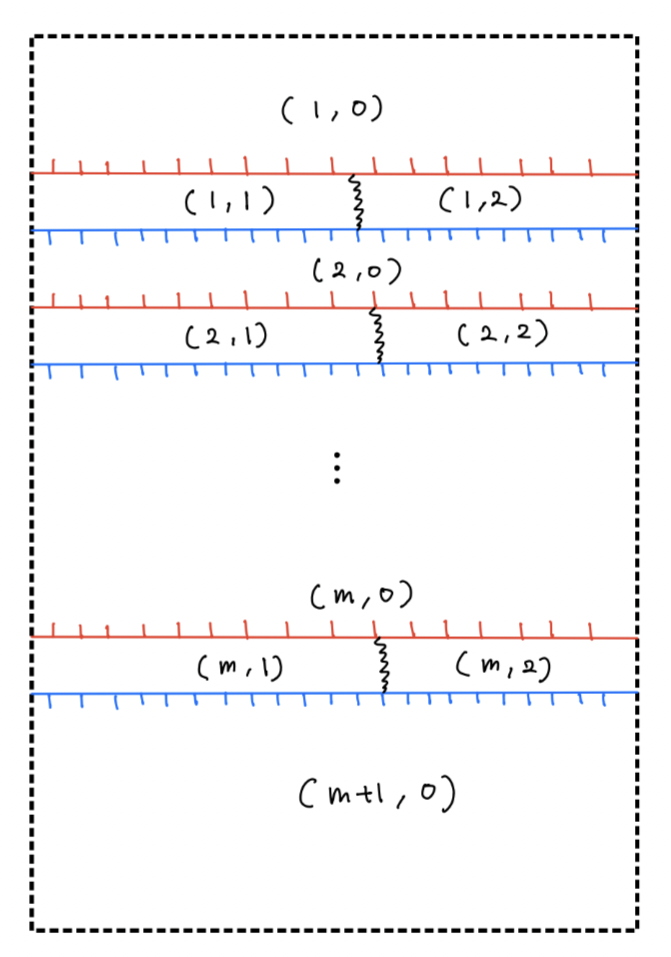 (1,0)
(1,1) (1,2)
(2,0)
(2,1) (2,2)
⋮
(m,0)
(m,1) (m,2)
(m+1,0)